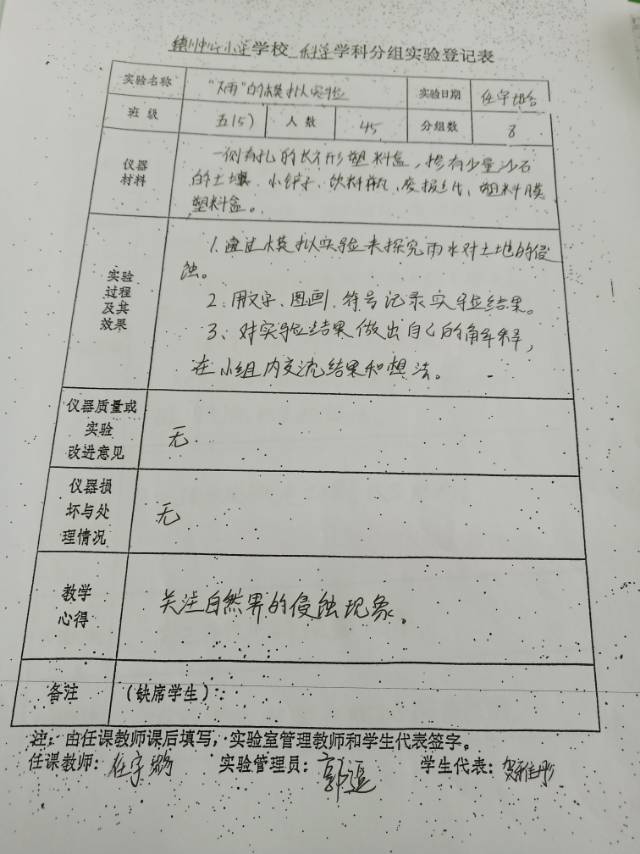 中心小学学校 科学学科分组实验登记表
实验名称 “雨”的模拟实验 实验日期
班级 五(5) 人数 45 分组数 8
仪器材料 一侧有孔的长方形塑料盒,掺有少量沙石
的土壤、小铲子、饮料瓶、废报纸、塑料膜
塑料盒。
实验过程及其效果 1.通过模拟实验来探究雨水对土地的侵
蚀。
2.用文字、图画、符号记录实验结果。
3、对实验结果做出自己的解释,
在小组内交流结果和想法。
仪器质量或实验改进意见 无
仪器损坏与处理情况 无
教学心得 关注自然界的侵蚀现象。
备注 (缺席学生):
注:由任课教师课后填写,实验室管理教师和学生代表签字。
任课教师: 实验管理员: 学生代表: